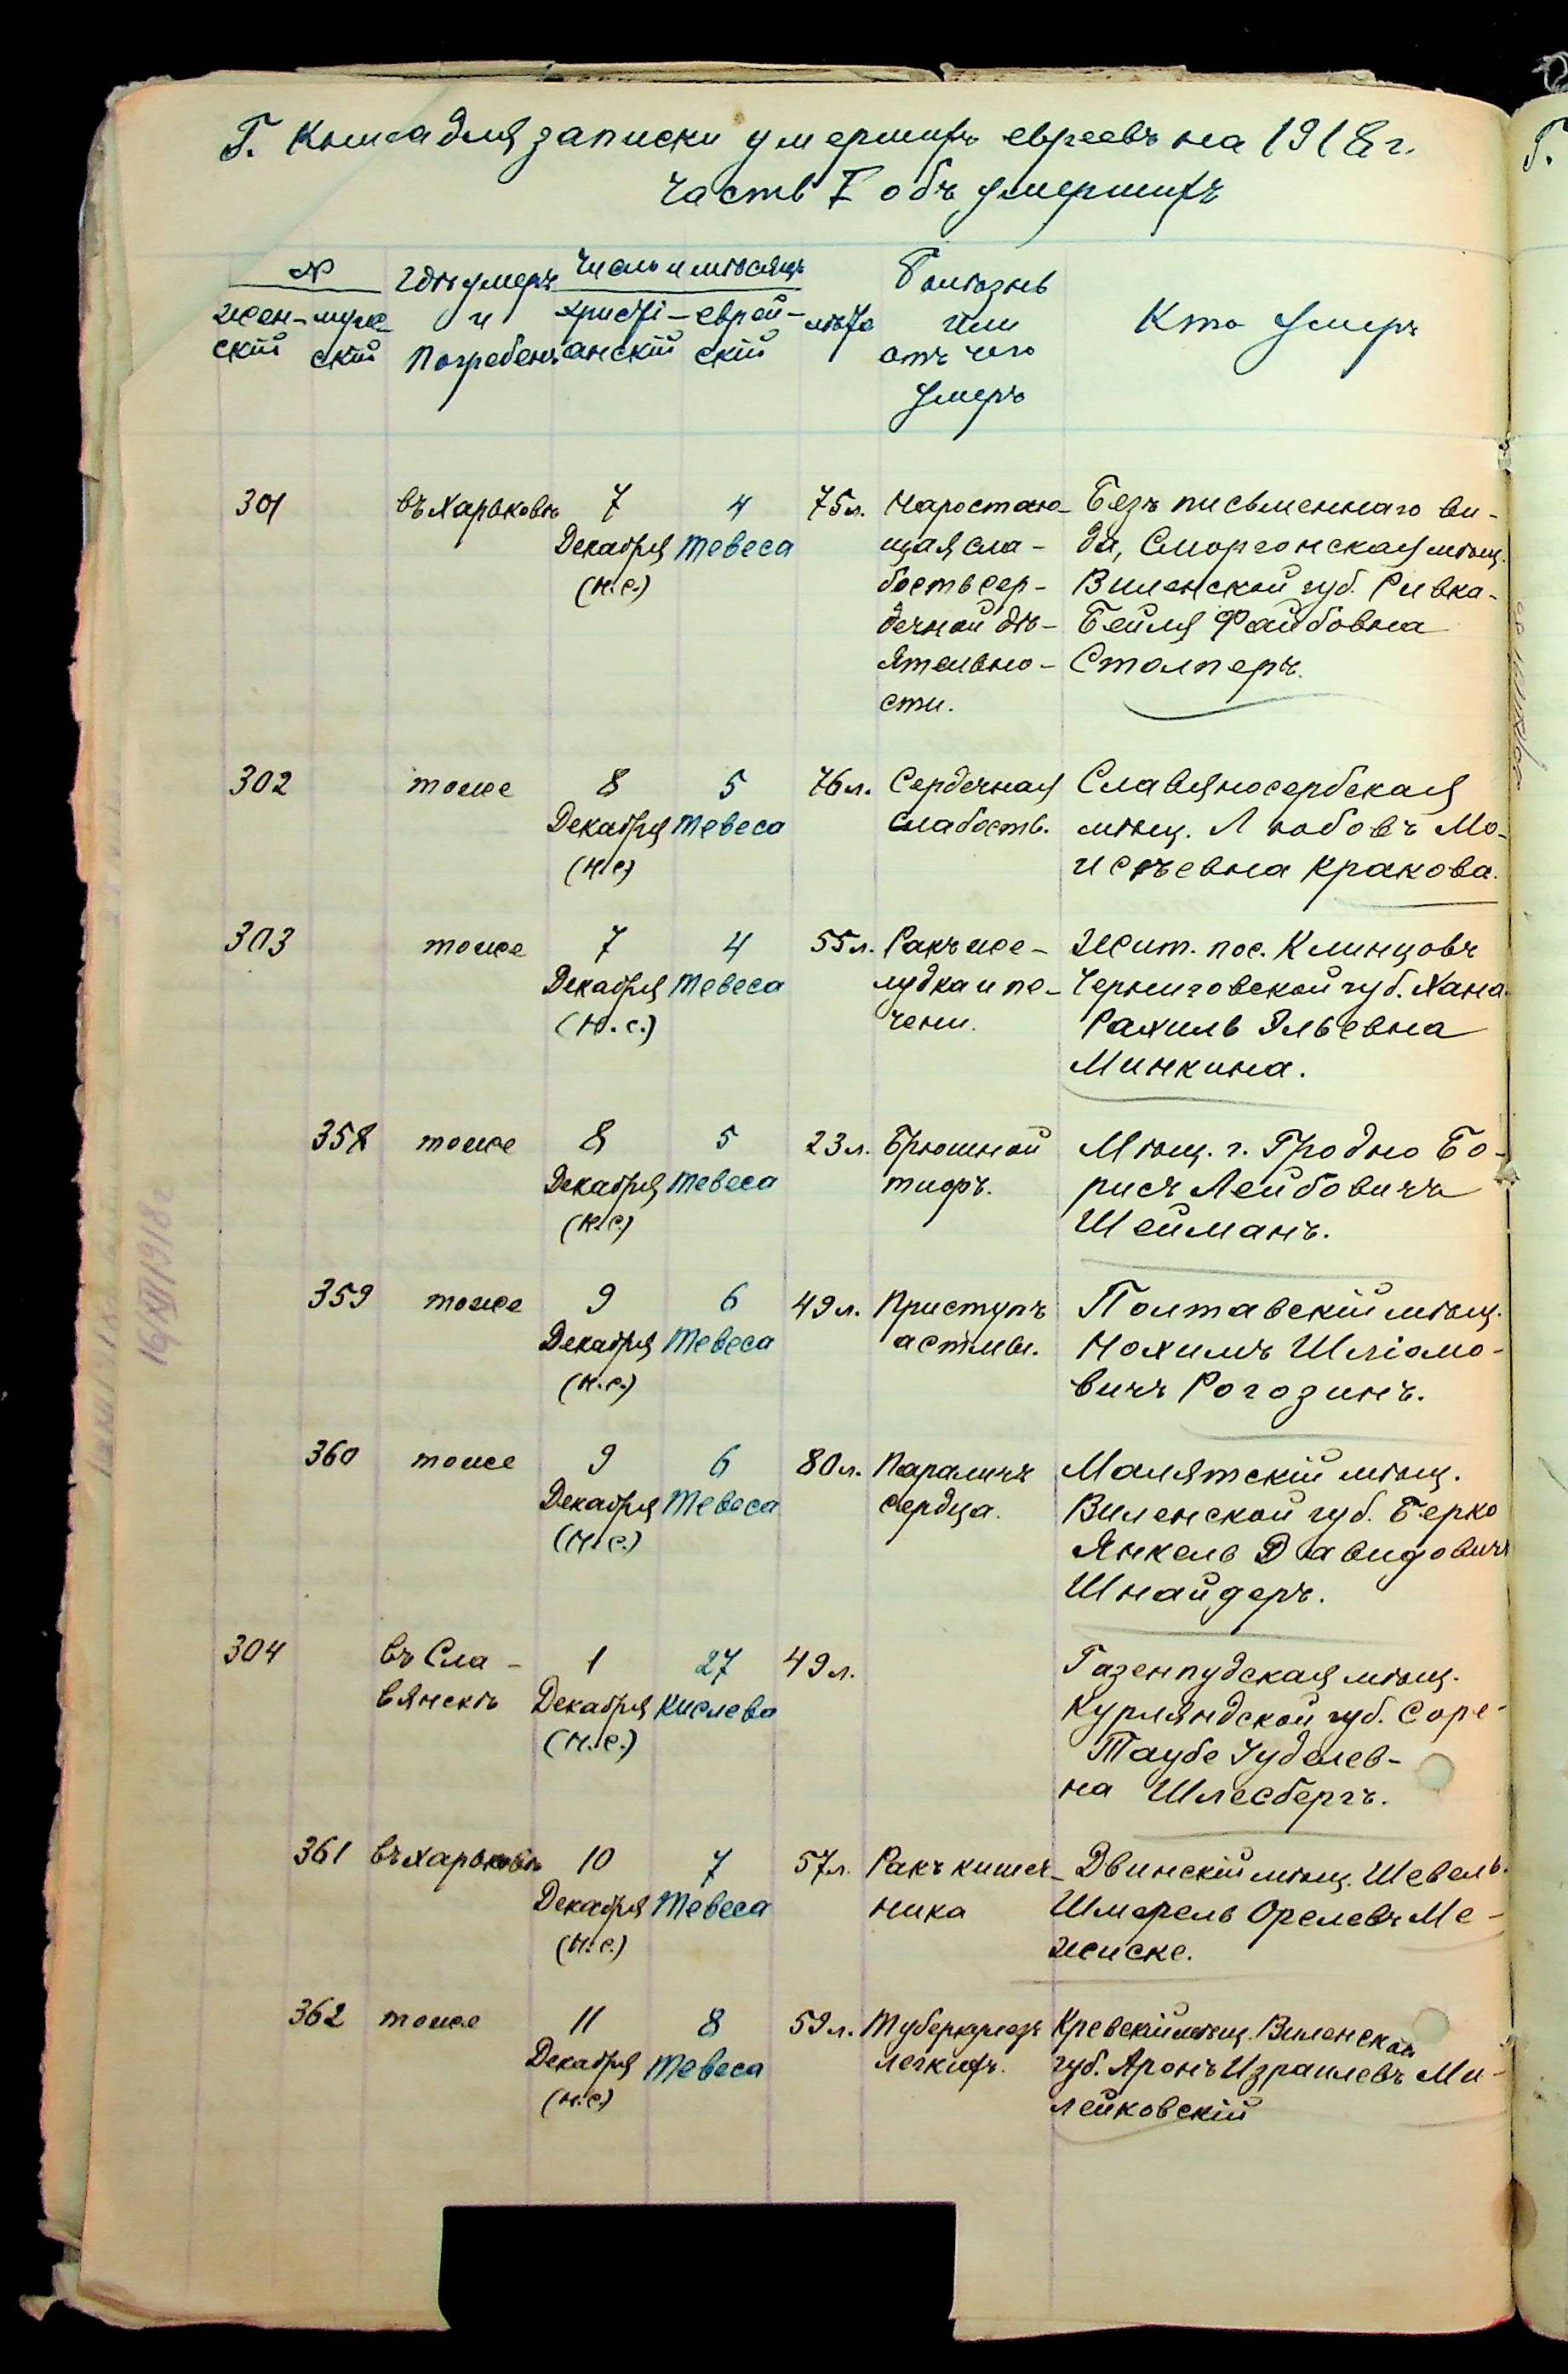 Г. Книга для записки умершихъ евреевъ на 1918 г.
Часть I объ умершихъ
№
жен-
ский
муж-
ской
Гдѣ умеръ
и
Погребенъ
Число и мѣсяцъ
христі-
анскій
еврей-
скій
лѣта
Болѣзнь
или
отъ чего
умеръ
Кто умеръ
301
въ Харьковѣ
7
Декабря
(н.с.)
4
Тевеса
75 л.
Наростаю-
щая сла-
бость сер-
дечной дѣ-
ятельно-
сти.
Безъ письменнаго ви-
да, Сморгонская мѣщ.
Виленской губ. Ривка-
Бейля Файбовна
Столперъ.
302
тоже
8
Декабря
(н.с)
5
Тевеса
76 л.
Сердечная
слабость.
Славяносербская
мѣщ. Любовь Мо-
исѣевна Кракова.
303
тоже
7
Декабря
(н.с.)
4
Тевеса
55 л.
Ракъ же-
лудка и пе-
чени.
Жит. пос. Клинцовъ
Черниговской губ. Хана-
Рахиль Эльевна
Минкина.
358
тоже
8
Декабря
(н.с.)
5
Тевеса
23 л.
Брюшной
тифъ.
Мѣщ. г. Гродно Бо-
рисъ Лейбовичъ
Шейманъ.
359
тоже
9
Декабря
(н.с.)
6
Тевеса
49 л.
Приступъ
астмы.
Полтавскій мѣщ.
Нохимъ Шліомо-
вичъ Рогозинъ.
360
тоже
9
Декабря
(н.с.)
6
Тевеса
80 л.
Параличъ
сердца.
Малятскій мѣщ.
Виленской губ. Берко
Янкель Давидовичъ
Шнайдеръ.
304
въ Сла-
вянскѣ
1
Декабря
(н.с.)
27
Кислева
49 л.
Газенпудская мѣщ.
Курляндской губ. Соре-
Таубе Іуделев-
на Шлесбергъ.
361
въ Харьковѣ
10
Декабря
(н.с.)
7
Тевеса
57 л.
Ракъ кишеч-
ника
Двинскій мѣщ. Шевель-
Шмерель Орелевъ Ме-
жиске.
362
тоже
11
Декабря
(н.с)
8
Тевеса
59 л.
Туберкулезъ
легкихъ.
Кревскій мѣщ. Виленской
губ. Аронъ Израилевъ Ми-
лейковскій
16/XII 1918 г
Г.